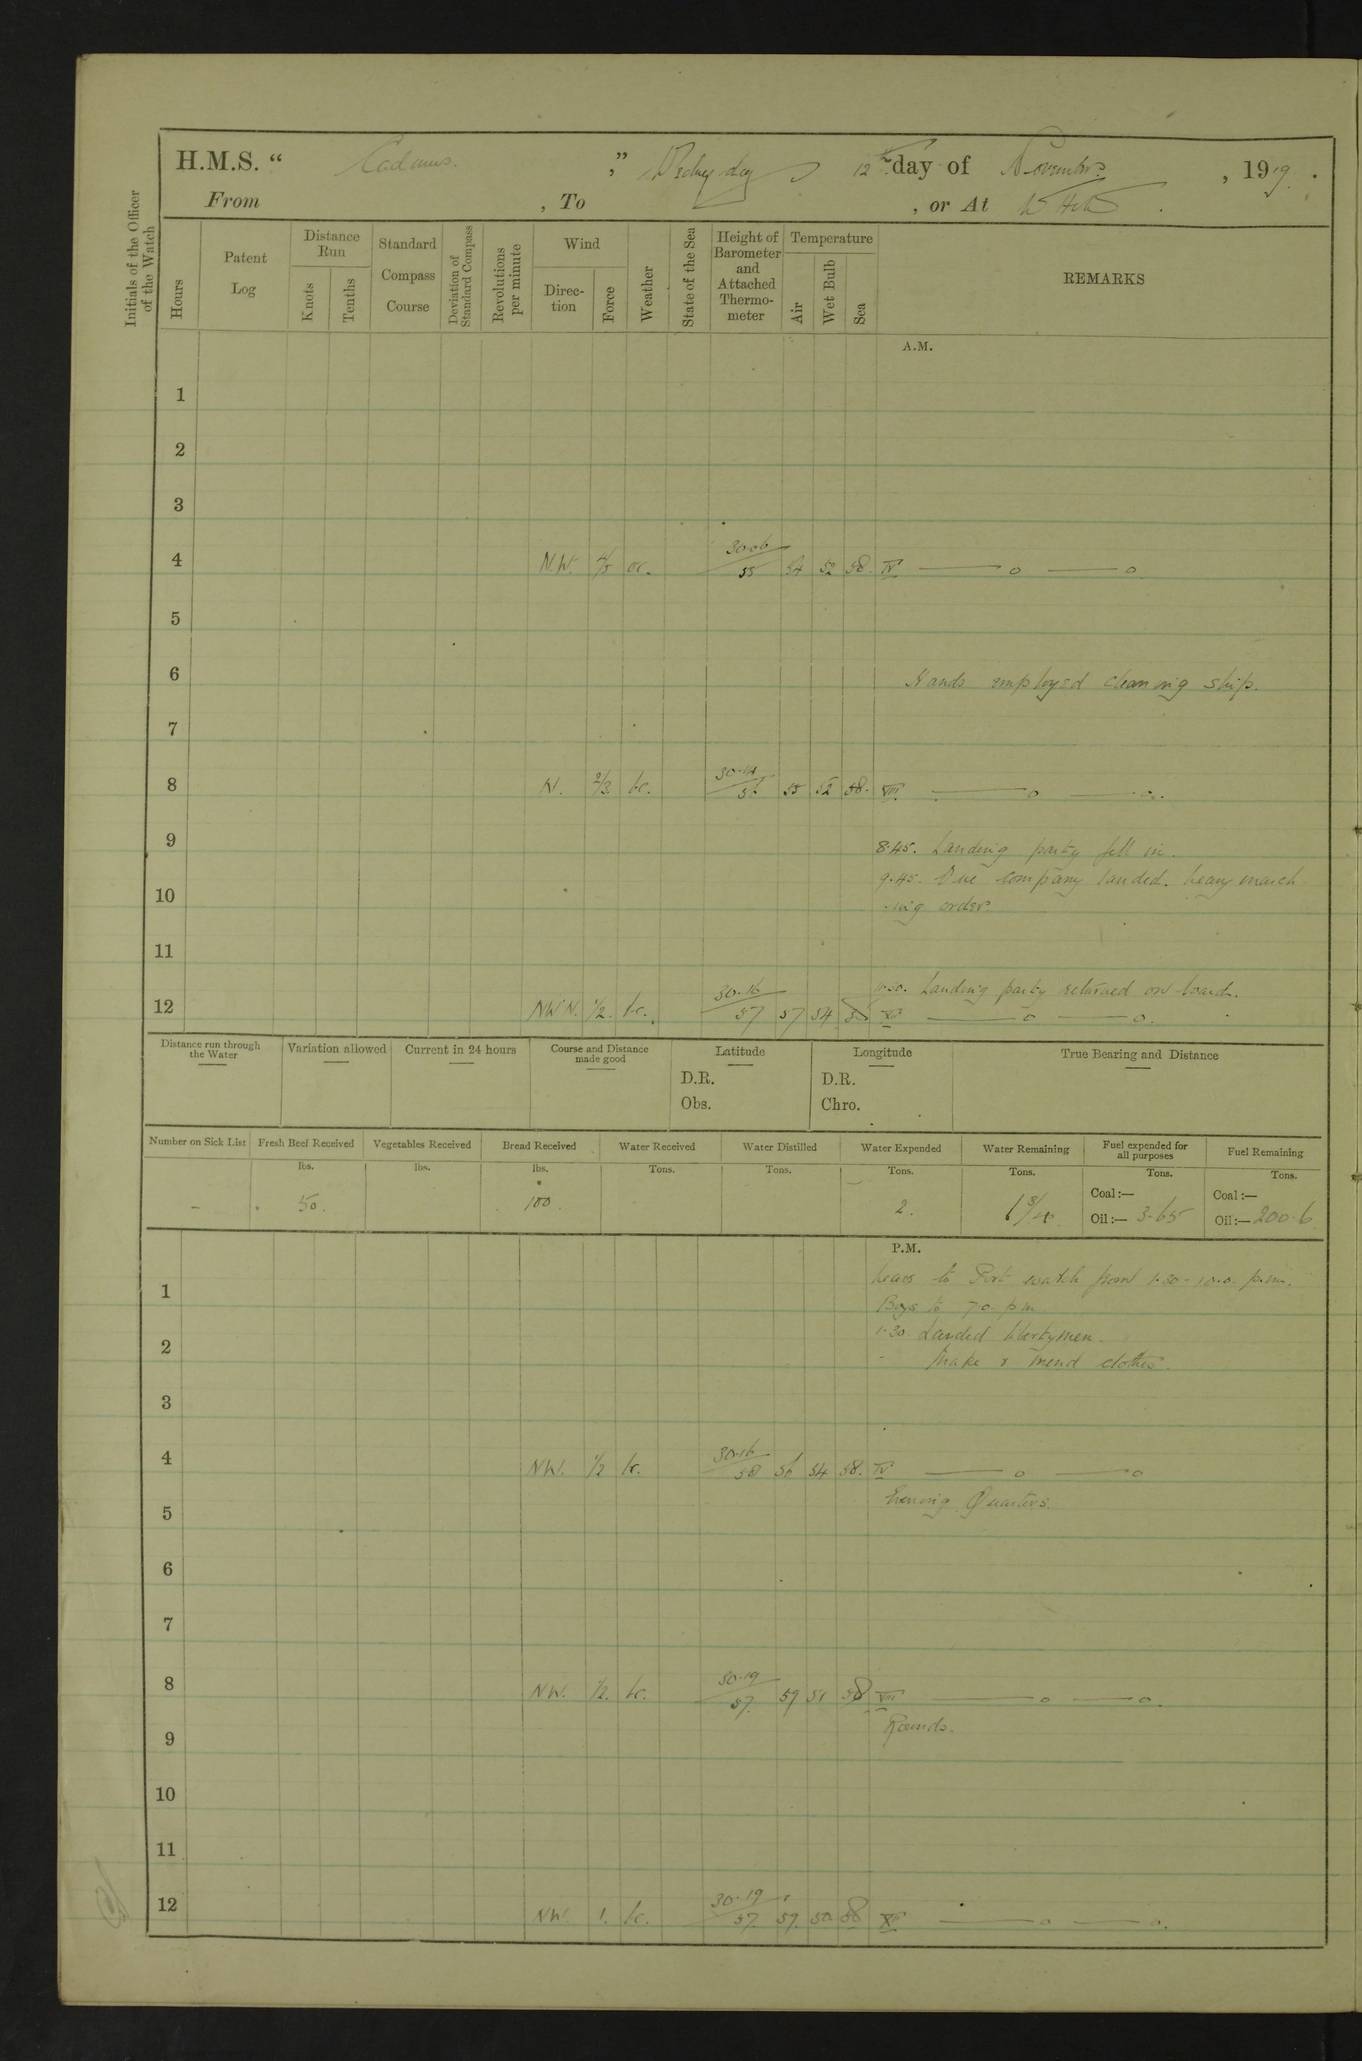 H.M.S. “ Cadmus. ” Wednesday , 12th day of November , 1919 .
From , To , or At
Initials of the Officer of the Watch
Hours
Patent Log
Distance Run
Knots
Tenths
Standard Compass Course
Deviation of Standard Compass
Revolutions per minute
Wind
Direction
Force
Weather
State of the Sea
Height of Barometer and Attached Thermometer
Temperature
Air
Wet Bulb
Sea
REMARKS
A.M.
1
2
3
4 N.W. 4/5 oc. 30.06 55 54 52 58. IV
5
6 Hands employed cleaning ship.
7
8 N. 2/3 bc. 30.14 56 55 52 58. VIII.
9 8.45. Landing party fell in.
9.45. One company landed. heavy march
10 -ing order.
11
11.30. Landing party returned on board.
12 NWN. 1/2. bc. 30.16 57 57 54 XII
Distance run through the Water
Variation allowed
Current in 24 hours
Course and Distance made good
Latitude
D.R.
Obs.
Longitude
D.R.
Chro.
True Bearing and Distance
Number on Sick List -
Fresh Beef Received lbs. 50.
Vegetables Received lbs.
Bread Received lbs. 100.
Water Received Tons.
Water Distilled Tons.
Water Expended Tons. 2.
Water Remaining Tons.
Fuel expended for all purposes Tons.
Coal :—
Oil :— 3.65
Fuel Remaining Tons.
Coal :—
Oil :— 200.6
P.M.
Leave to Port watch from 1.30 - 10.0 p.m.
1 Boys to 7.0. p.m.
1.30 Landed libertymen.
2 Make & mend clothes.
3
4 NW. 1/2 bc. 30.16 58 56 54 58. IV
Evening Quarters.
5
6
7
8 NW. 1/2. bc. 30.19 57. 57 51 58 VIII
Rounds.
9
10
11
12 NW. 1. bc. 30.19 57. 57. 50 58 XII